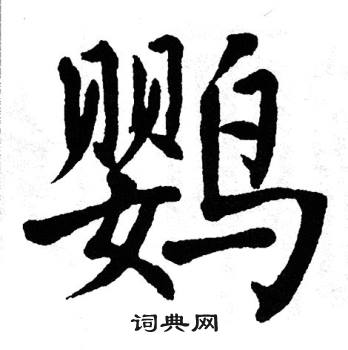 鹦
词典网